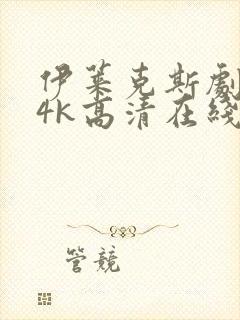 伊莱克斯劇
4K高清在綫
管競